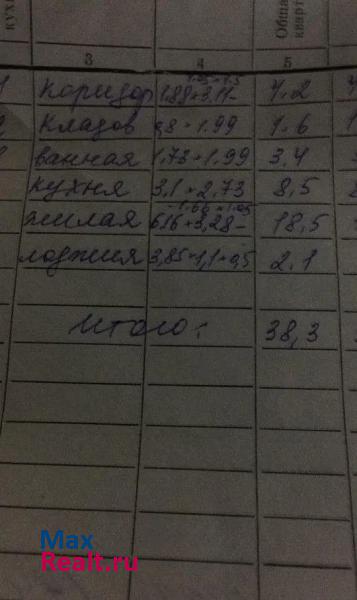 кух
Обща
кварт
3 4 5
коридор 1.88×3.11- 4.2
кладов 0,8×1.99 1.6
ванная 1.73×1.99 3.4
кухня 3,1×2,73 8,5
жилая 6.16×3,28- 18,5
лоджия 3,85×1,1×0,5 2.1
Итого: 38,3
Max
Realt.ru